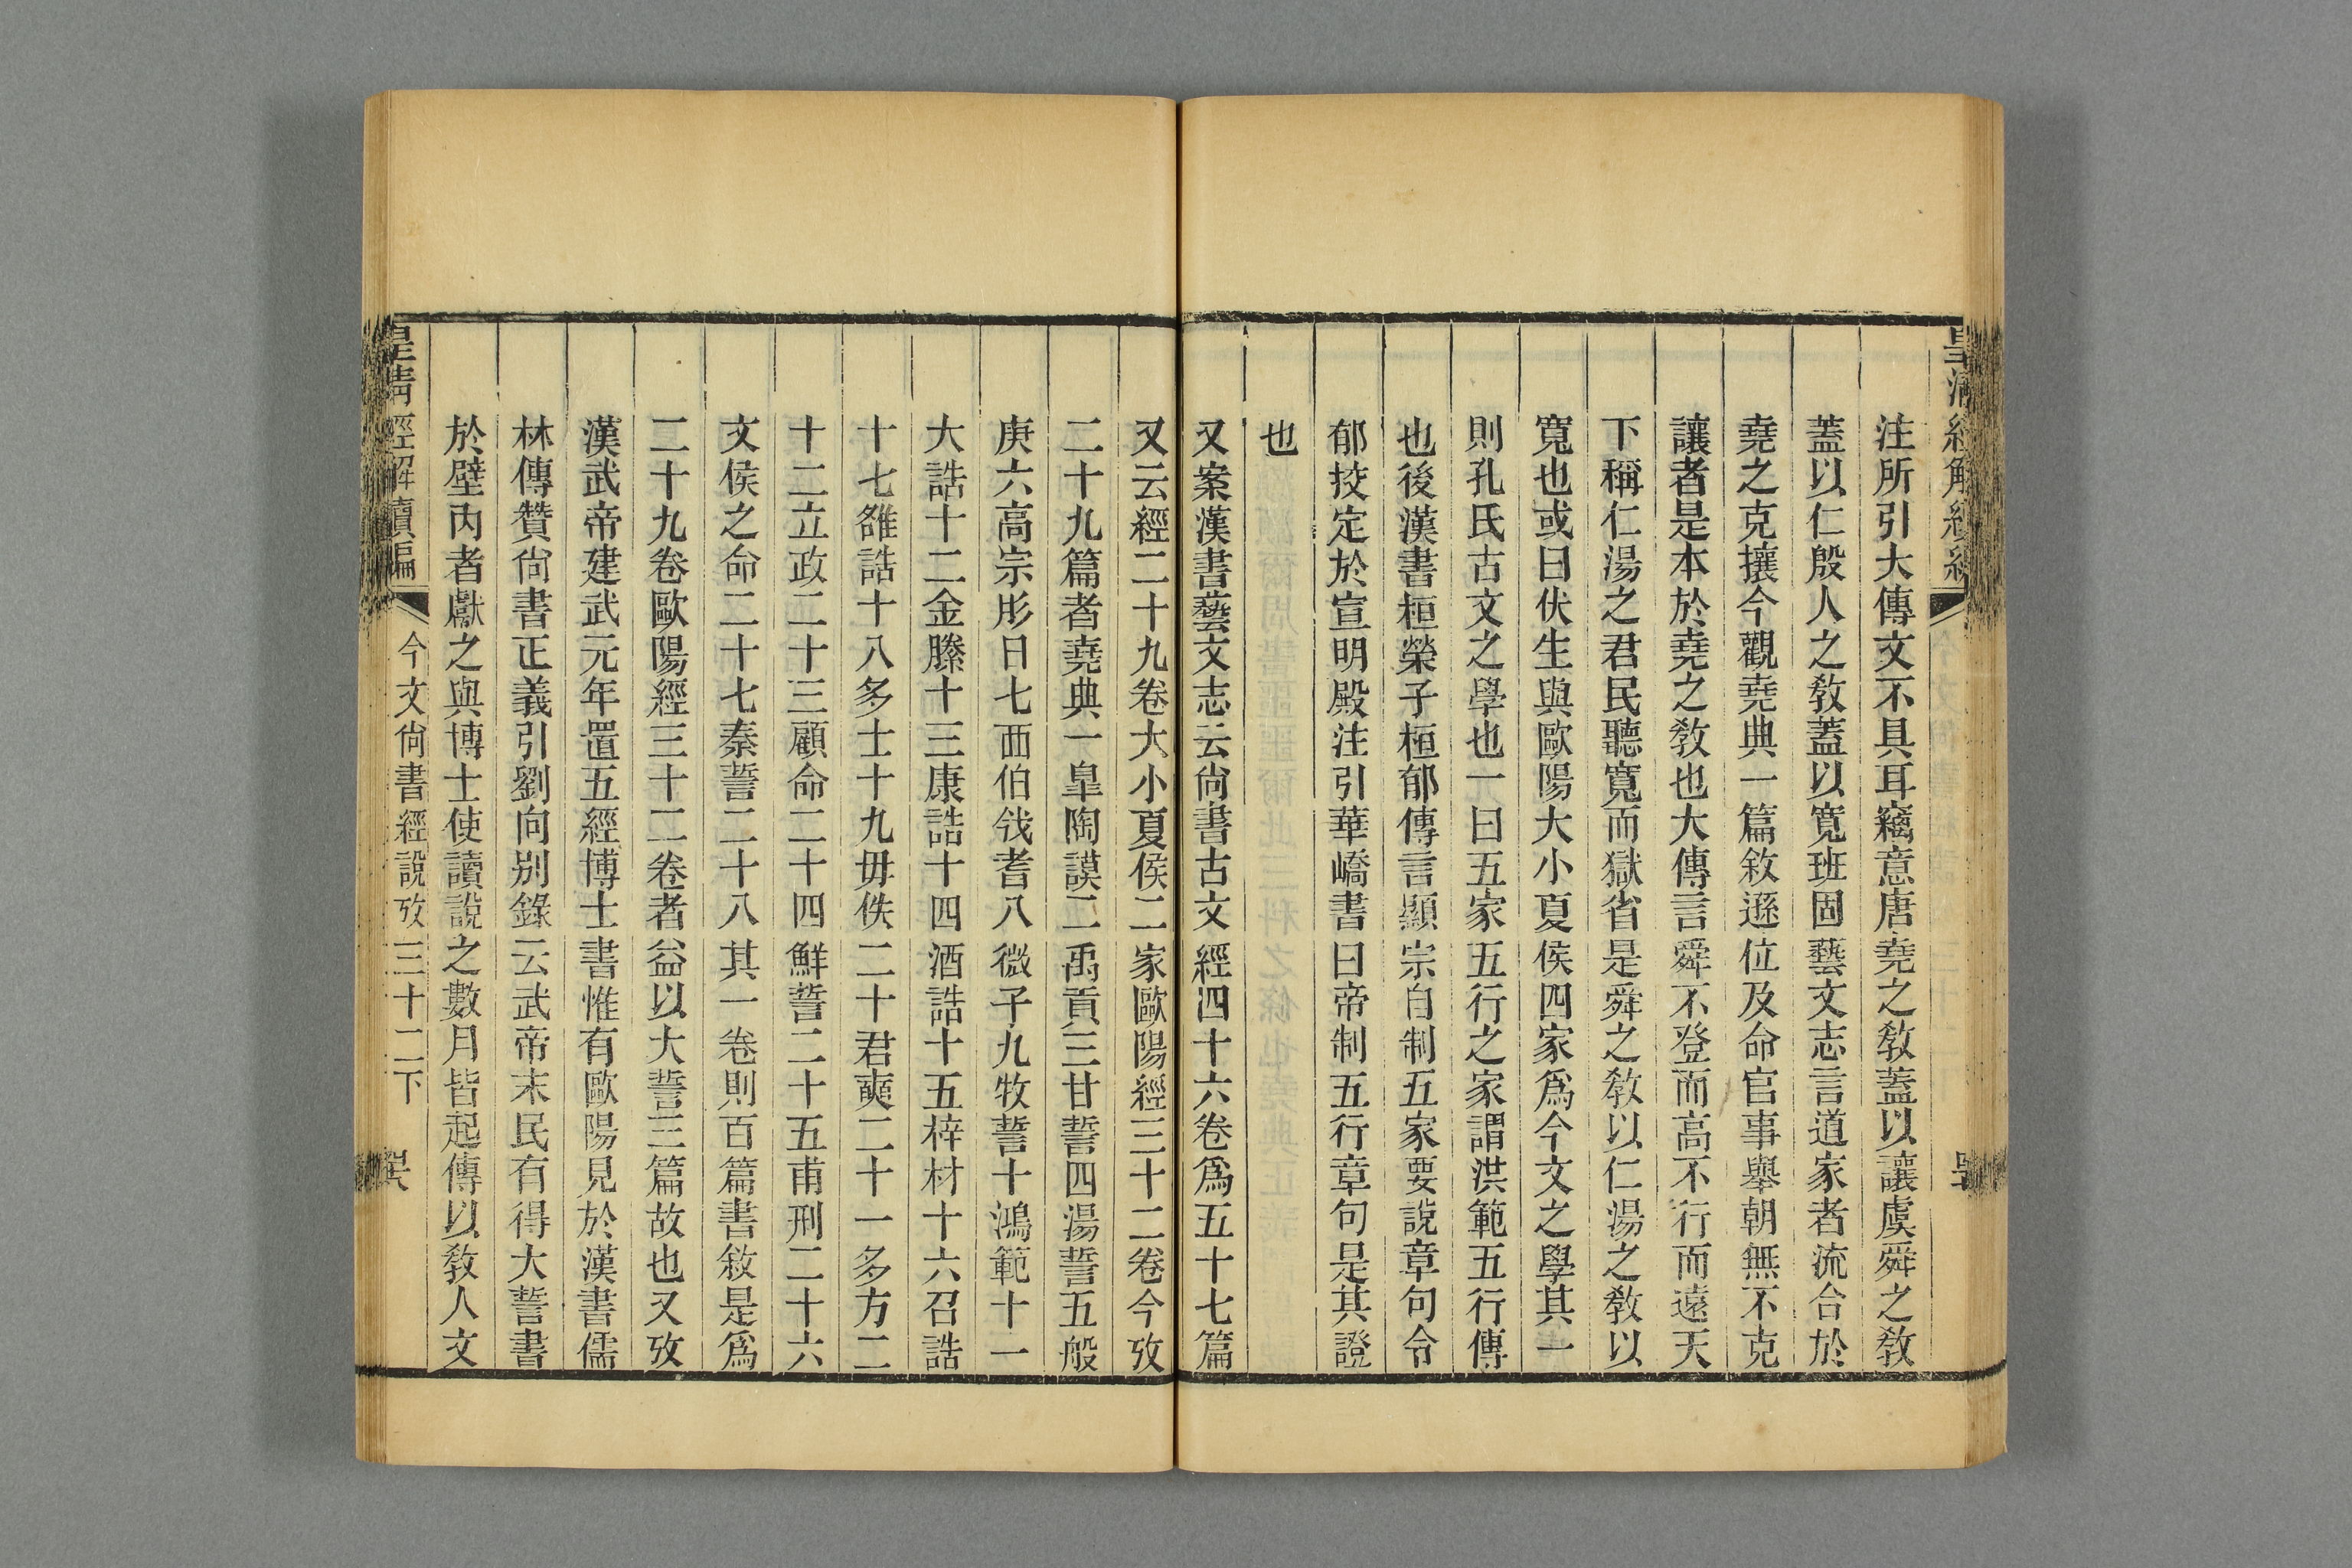 注所引大傳文不具耳竊意唐堯之敎蓋以讓虞舜之敎
蓋以仁殷人之敎蓋以寛班固藝文志言道家者流合於
堯之克攘今觀堯典一篇敘遜位及命官事舉朝無不克
讓者是本於堯之敎也大傳言舜不登而高不行而遠天
下稱仁湯之君民聽寛而獄省是舜之敎以仁湯之敎以
寛也或曰伏生與歐陽大小夏侯四家爲今文之學其一
則孔氏古文之學也一曰五家五行之家謂洪範五行傳
也後漢書桓榮子桓郁傳言顯宗自制五家要說章句令
郁挍定於宣明殿注引華嶠書曰帝制五行章句是其證
也
又案漢書藝文志云尙書古文經四十六卷爲五十七篇
又云經二十九卷大小夏侯二家歐陽經三十二卷今攷
二十九篇者堯典一皐陶謨二禹貢三甘誓四湯誓五般
庚六高宗肜日七西伯戗耆八微子九牧誓十鴻範十一
大誥十二金縢十三康誥十四酒誥十五梓材十六召誥
十七雒誥十八多士十九毋佚二十君奭二十一多方二
十二立政二十三顧命二十四鮮誓二十五甫刑二十六
文侯之命二十七秦誓二十八其一卷則百篇書敘是爲
二十九卷歐陽經三十二卷者益以大誓三篇故也又攷
漢武帝建武元年置五經博士書惟有歐陽見於漢書儒
林傳贊尙書正義引劉向别錄云武帝末民有得大誓書
於壁內者獻之與博士使讀說之數月皆起傳以敎人文
皇清經解續編
今文尙書經說攷三十二下